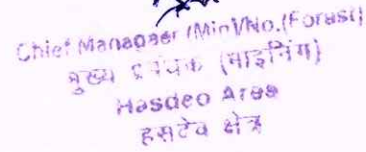 Chief Manager (Min)/No.(Forest)
मुख्य प्रबंधक (माइनिंग)
Hasdeo Area
हसदेव क्षेत्र